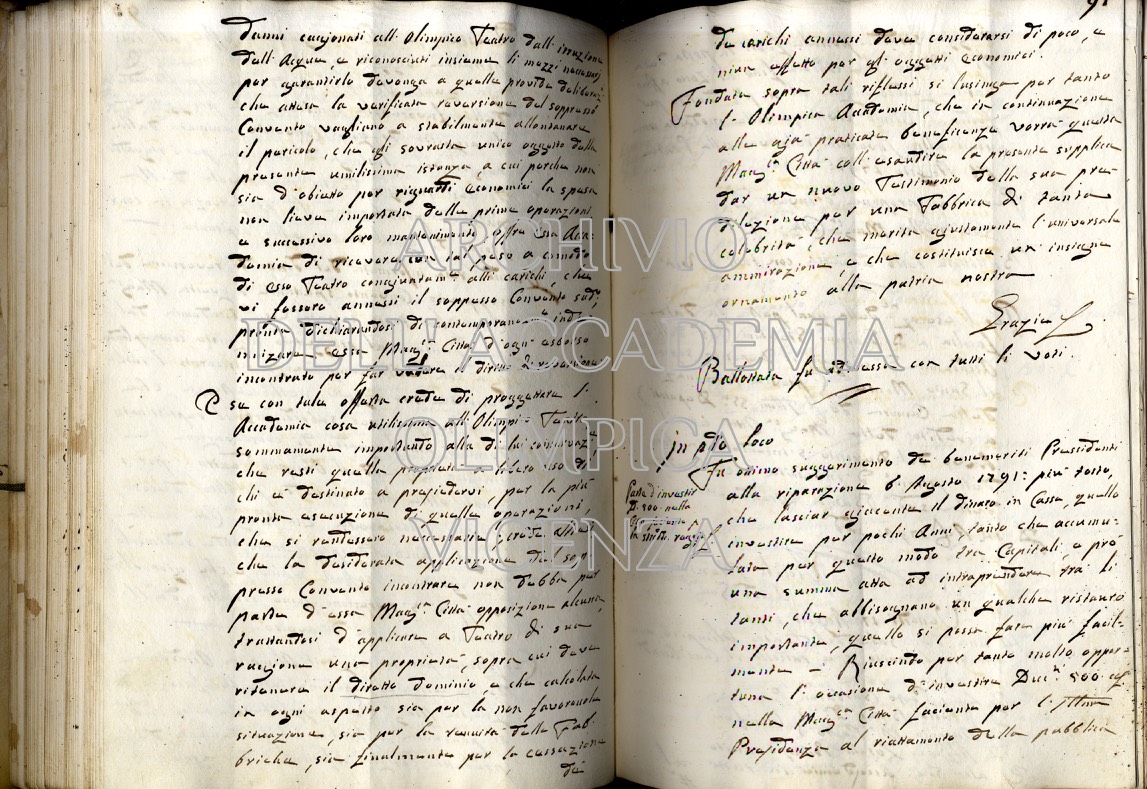 Danni cagionati all'Olimpico Teatro dall'irruzione
dell'Acqua, e riconosciuti insieme li mezzi necessarj
per garantirlo devenga a quella provida deliberaz.e
che attesa la verificata reversione del soppresso
Convento vagliano a stabilmente allontanare
il pericolo, che gli sovrasta unico oggetto della
presente umilissima istanza, a cui perche non
sia d'obietto per riguardi economici la spesa
non lieve importata dalle prime operazioni
e successivo loro mantenimento offre essa Aca-
demia di ricevere con tal peso a comodo
di esso Teatro congiuntam.e alli carichi, che
vi fossero annessi il soppresso Convento sud.o,
pronta dichiarandosi di contemporaneam.e inde-
nnizare essa Mag.ca Città d'ogni esborso
incontrato per far valere il diretto di reversione
E se con tale offerta crede di proggettare l'
Accademia cosa utilissima all'Olimpico Teatro
sommamente importando alla di lui conservaz.e
che resti quella proprietà a libero uso di
chi è destinato a presiedervi, per la più
pronta esecuzione di quelle operazioni,
che si rendessero necessarie; crede altresì
che la desiderata applicazione del sop-
presso Convento incontrare non debba per
parte d'essa Mag.ca Città opposizione alcuna,
trattandosi d'applicare a Teatro di sua
raggione una proprietà, sopra cui deve
ritenere il diretto dominio, e che calcolata
in ogni aspetto sia per la non favorevole
situazione, sia per la venustà della Fab-
briche, sia finalmente per la cessazione
de
91
de carichi annessi deve considerarsi di poco, e
niun effetto per gli oggetti economici.
Fondata sopra tali riflessi si lusinga per tanto
l'Olimpica Accademia, che in continuazione
alla già praticata beneficenza vorrà questa
Mag.ca Città coll'esaudire la presente supplica
dar un nuovo Testimonio della sua pre-
dilezione per una Fabbrica di tanta
celebrità, che merita giustamente l'universale
ammirazione, e che costituisce un insigne
ornamento alla patria nostra
Grazie
Ballottata fu presa con tutti li voti.
In pd.to loco
Parte d'investir
D. 500 nella
Fu ottimo suggerimento de benemeriti Presidenti
alla riparazione 6 Agosto 1791: più tosto,
che lasciar giacente il dinaro in Cassa, quello
investire per pochi Anni, tanto che accumu-
lata per questo modo tra Capitali, e prò
una summa atta ad intraprendere tra li
tanti, che abbisognano un qualche ristauro
importante, quello si possa fare più facil-
mente - Riuscindo per tanto molto oppor-
tuna l'occasione d'investire Duc.ti 500
nella Mag.ca Città facienta per l'Ill.ma
Presidenza al riattamento della pubblica
ARCHIVIO
DELL'ACCADEMIA
OLIMPICA
VICENZA